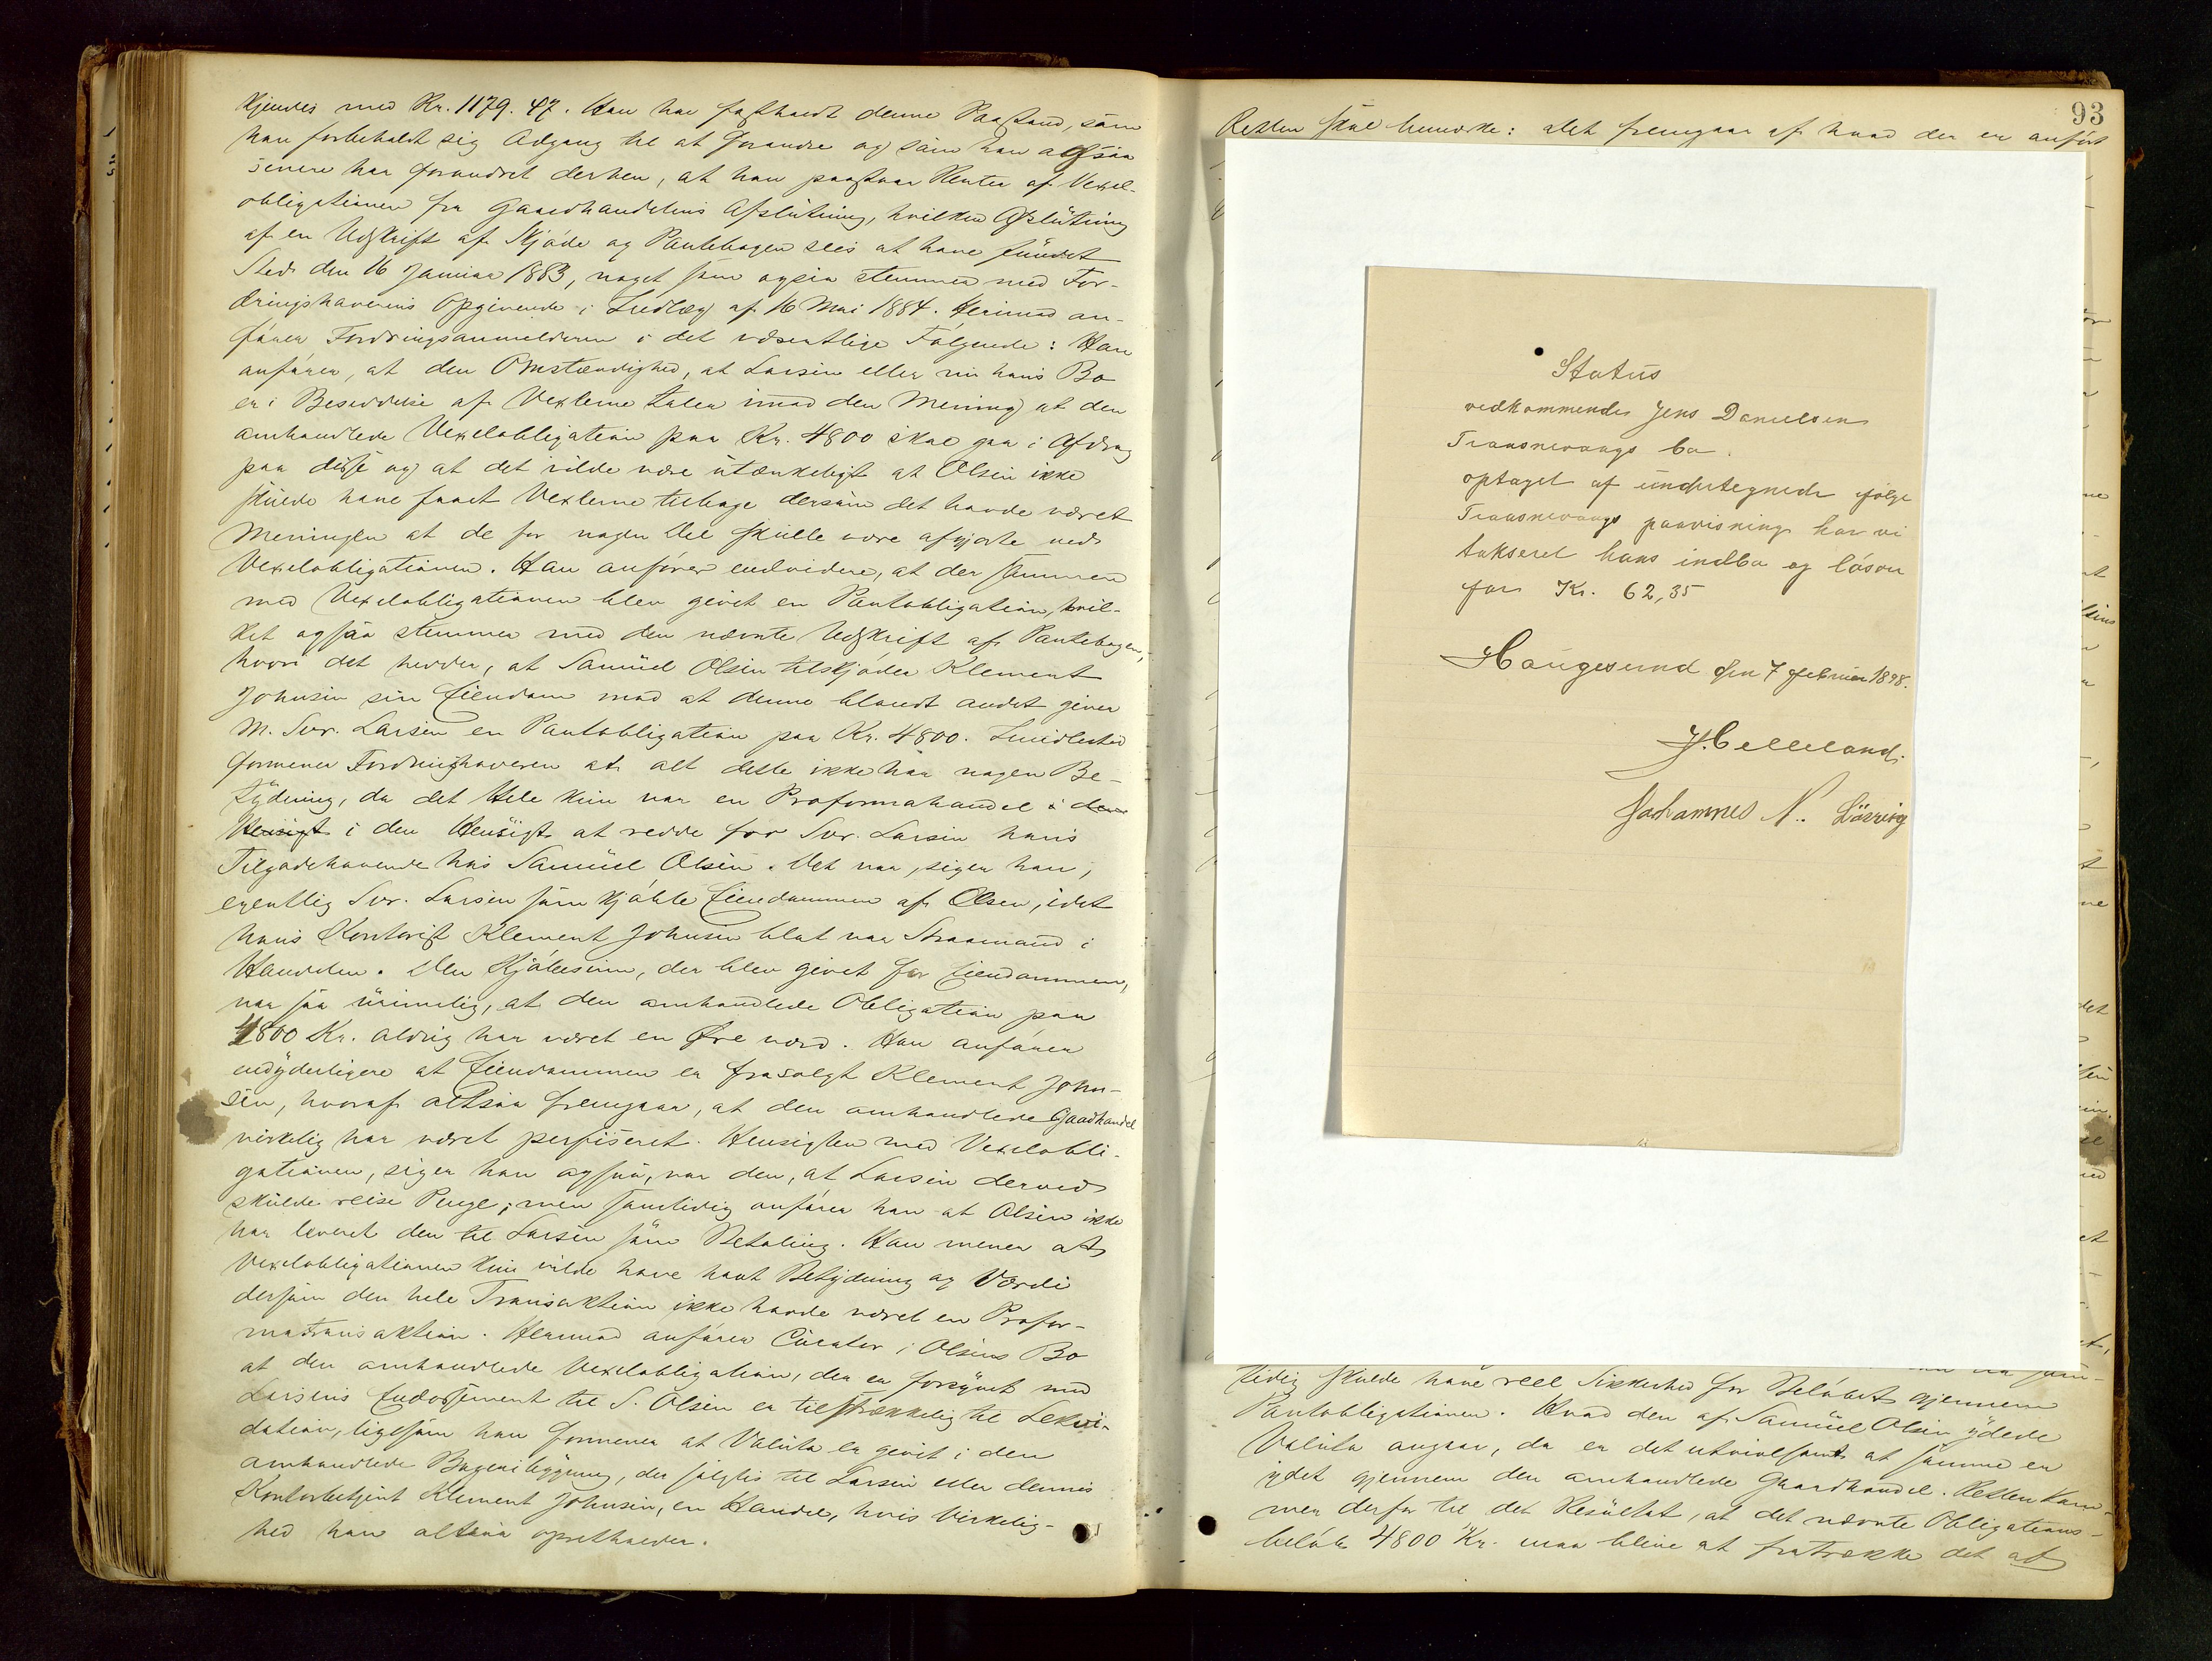 kjendes med Kr. 1179. 47. Han har fastholdt denne Paastand, som
han forbeholdt sig Adgang til at forandre og som han altsaa
senere har forandret derhen, at han paastaar Renter af Vexel-
obligationen fra Gaardhandelens Afslutning, hvilken Afslutning
af en Udskrift af Skjøde og Pantebogen sees at have fundet
Sted den 16 Januar 1883, noget som ogsaa stemmer med For-
dringshaverens Opgivende i Indlæg af 16 Mai 1884. Herimod an-
fører Fordringsanmelderen i det væsentlige Følgende: Han
anfører, at den Omstændighed, at Larsen eller nu hans Bo
er i Besiddelse af Vexlerne taler imod den Mening at den
omhandlede Vexelobligation paa Kr. 4800 skal gaa i Afdrag
paa disse og at det vilde være utænkeligt at Olsen ikke
skulde have faaet Vexlerne tilbage dersom det havde været
Meningen at de for nogen Del skulle være afgjorte ved
Vexelobligationen. Han anfører endvidere, at der sammen
med Vexelobligationen blev givet en Pantobligation, hvil-
ket ogsaa stemmer med den nævnte Udskrift af Pantebogen,
hvori det hedder, at Samuel Olsen tilskjøder Klement
Johnsen sin Eiendom mod at denne blandt andet giver
M. Svr. Larsen en Pantobligation paa Kr. 4800. Imidlertid
formener Fordringshaveren at alt dette ikke har nogen Be-
tydning, da det Hele kun var en Proformahandel i den
Hensigt i den Hensigt at redde for Svr. Larsen hans
Tilgodehavende hos Samuel Olsen. Det var, siger han,
egentlig Svr. Larsen som kjøbte Eiendommen af Olsen, idet
hans Kontorist Klement Johnsen blot var Straamand i
Handelen. Den Kjøbesum, der blev givet for Eiendommen,
var saa urimelig, at den omhandlede Obligation paa
4800 Kr. aldrig har været en Øre værd. Han anfører
endyderligere at Eiendommen er frasolgt Klement John-
sen, hvoraf altsaa fremgaar, at den omhandlede Gaardhandel
virkelig har været perfiseret. Hensigten med Vexelobli-
gationen, siger han ogsaa, var den, at Larsen derved
skulde reise Penge; men samtidig anfører han at Olsen ikke
har leveret den til Larsen som Betaling. Han mener at
Vexelobligationen kun vilde have havt Betydning og Værdi
dersom den hele Transaktion ikke havde været en Profor-
matransaktion. Herimod anfører Curator i Olsens Bo
at den omhandlede Vexelobligation, der er forsynet med
Larsens Endossement til S. Olsen er tilstrækkelig til Lekvi-
dation, ligesom han formener at Valuta er givet i den
omhandlede Bageribygning, der solgtes til Larsen eller dennes
Kontorbetjent Klement Johnsen, en Handel, hvis Virkelig-
hed han altsaa opretholder.
93
Retten skal bemærke: Det fremgaar af hvad der er anført
Status
vedkommende Jens Danielsen
Traasnevangs bo.
optaget af undertegnede følge
Traasnevangs paavisning har vi
takseret hans indbo og løsøre
for Kr. 62,35
Haugesund den 7 februar 1898.
J. Helleland
Johannes N. Lövvig
tidig skulde have reel Sikkerhed for Beløbet gjennem
Pantobligationen. Hvad den af Samuel Olsen ydede
Valuta angaar, da er det utvivlsomt at samme er
ydet gjennem den omhandlede Gaardhandel. Retten kom-
mer derfor til det Resultat, at det nævnte Obligations-
beløb 4800 Kr. maa blive at fratrække det af